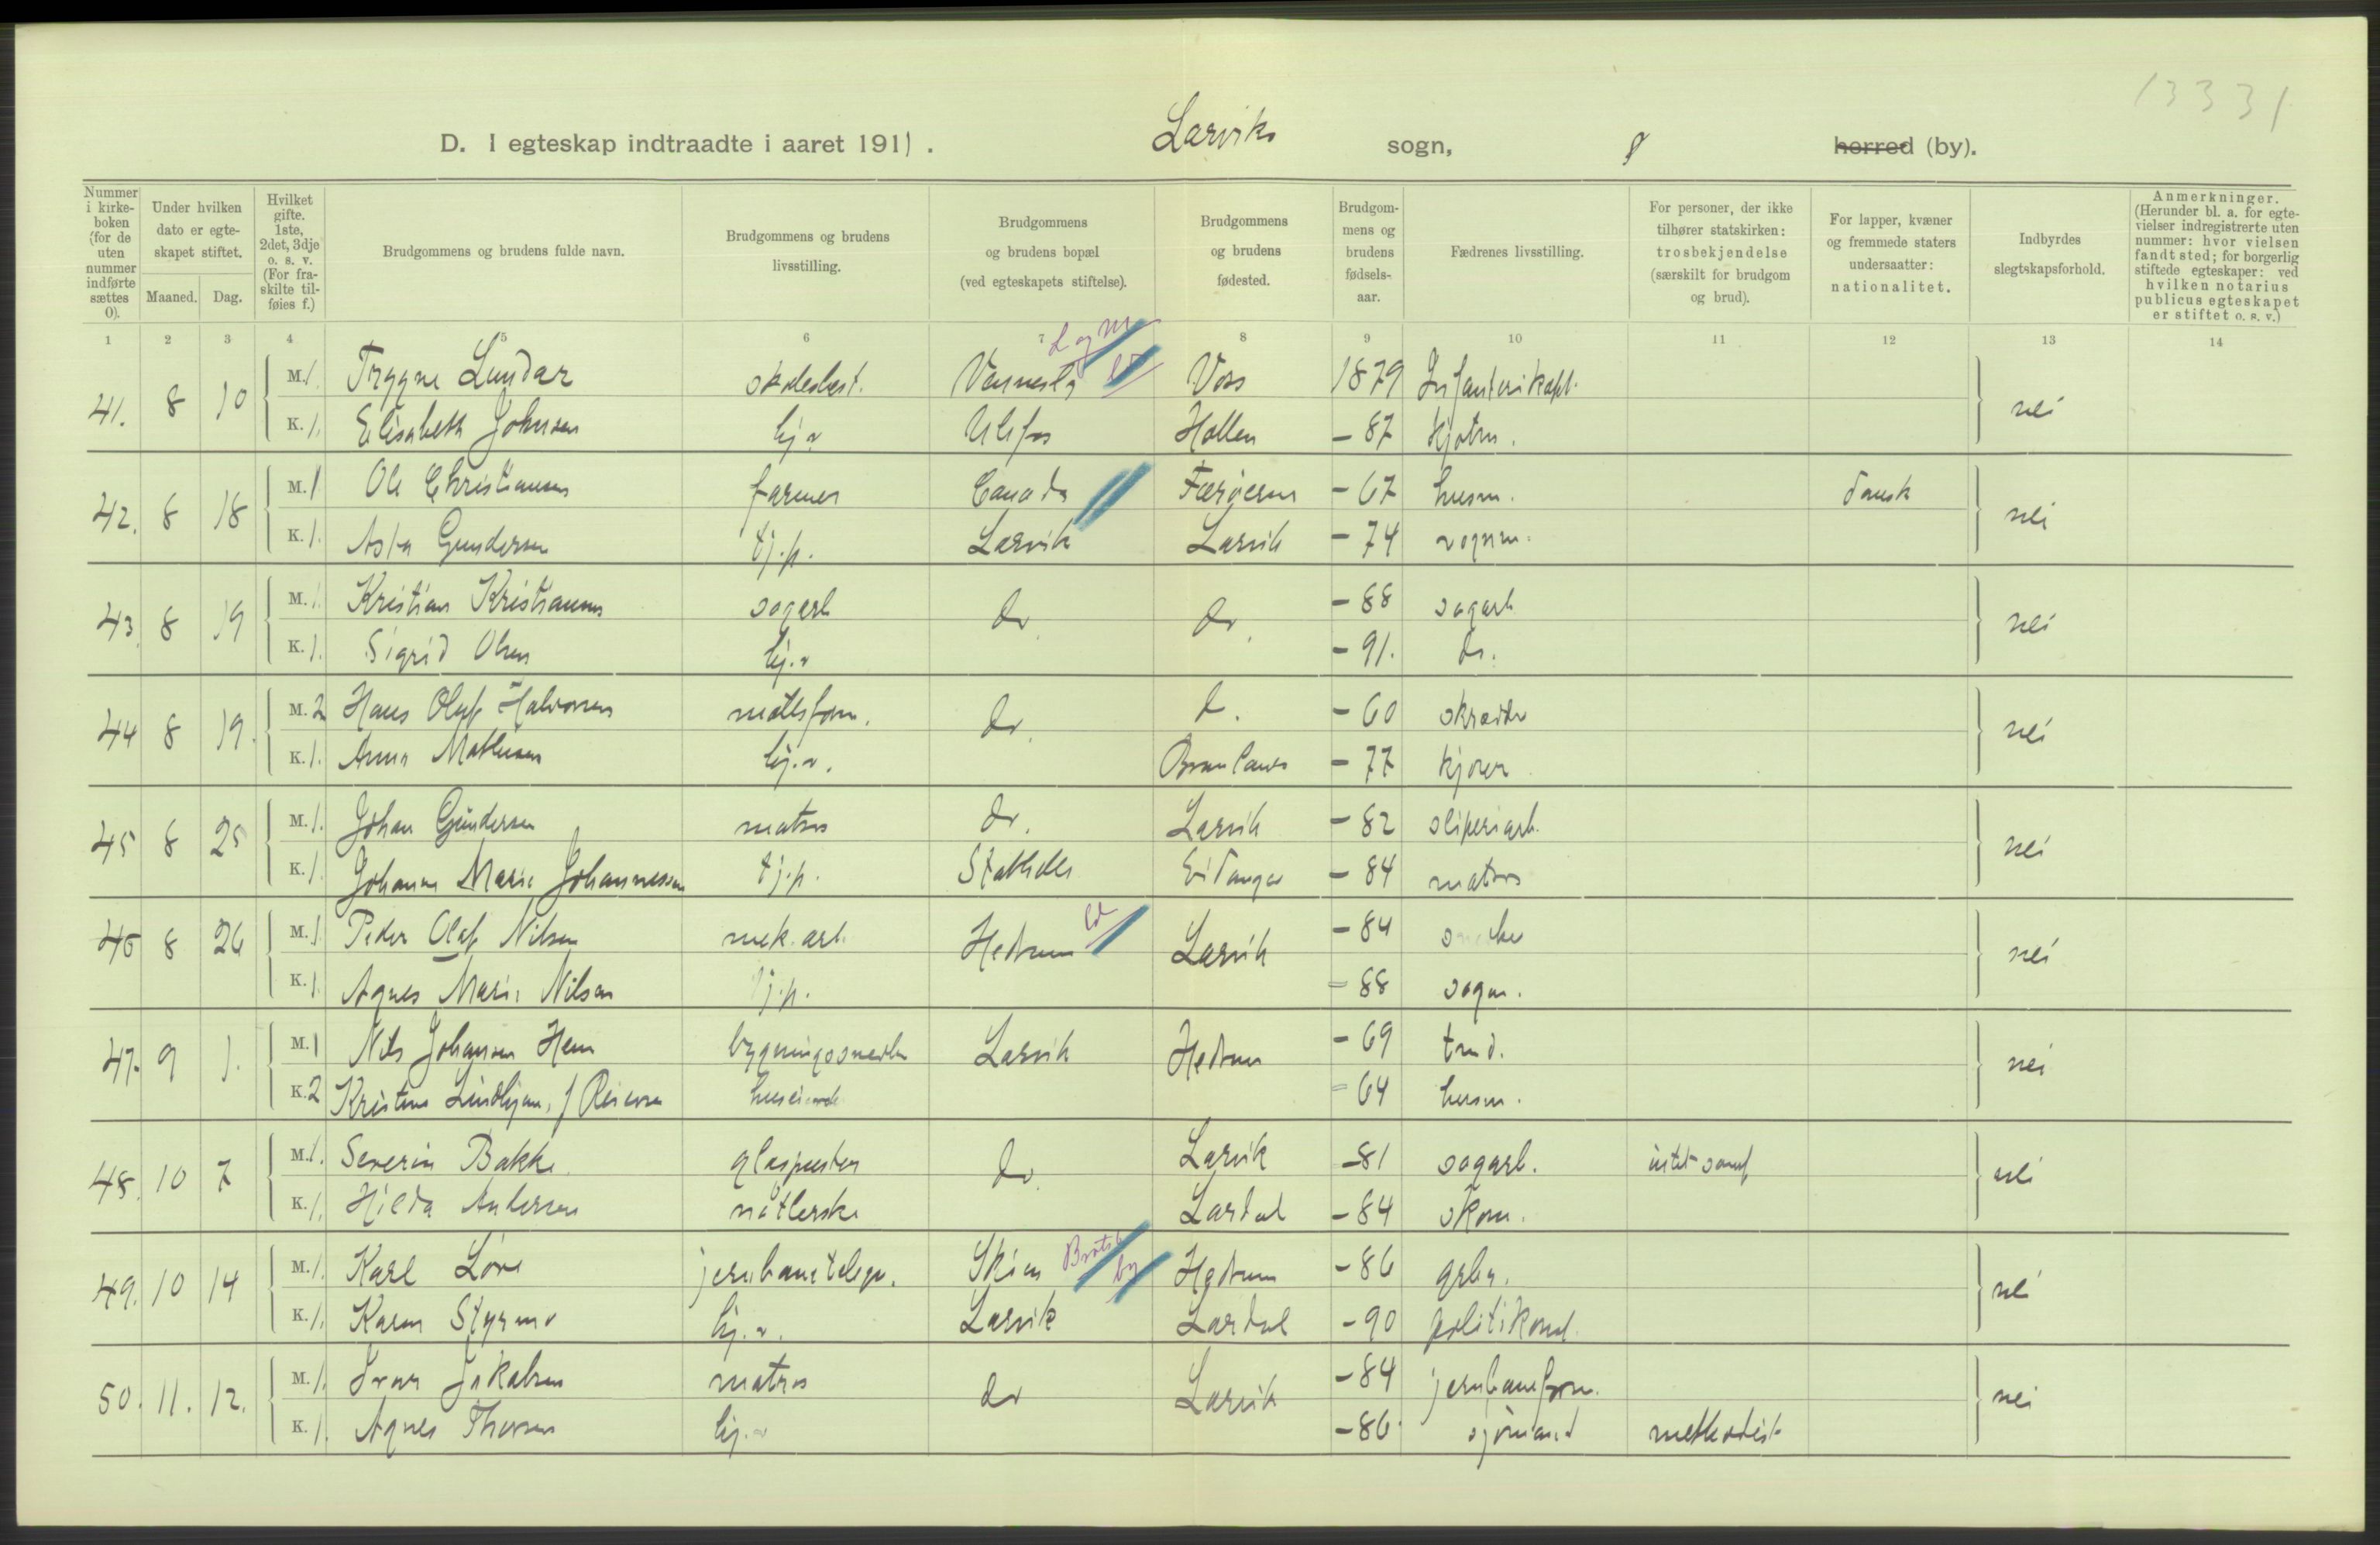 13331
D. I egteskap indtraadte i aaret 1911. Larviks sogn, herred (by).
Nummer i kirkeboken (for de uten nummer indførte sættes 0).
Under hvilken dato er egteskapet stiftet.
Maaned. Dag.
Hvilket gifte. 1ste, 2det, 3dje o. s. v. (For fraskilte tilføies f.)
Brudgommens og brudens fulde navn.
Brudgommens og brudens livsstilling.
Brudgommens og brudens bopæl (ved egteskapets stiftelse).
Brudgommens og brudens fødested.
Brudgommens og brudens fødselsaar.
Fædrenes livsstilling.
For personer, der ikke tilhører statskirken: trosbekjendelse (særskilt for brudgom og brud).
For lapper, kvæner og fremmede staters undersaatter: nationalitet.
Indbyrdes slegtskapsforhold.
Anmerkninger. (Herunder bl. a. for egtevielser indregistrerte uten nummer: hvor vielsen fandt sted; for borgerlig stiftede egteskaper: ved hvilken notarius publicus egteskapet er stiftet o. s. v.)
1 2 3 4 5 6 7 8 9 10 11 12 13 14
41. 8 10 M. 1. Trygve Lundar skolebest. Voss 1879 Infanterikapt. nei
K. 1. Elisabeth Johnsen hj. v Ulefos Hollen - 87 kjøtm.
42. 8 18 M. 1 Ole Christiansen farmer Canada Færøerne - 67 husm. dansk nei
K. 1. Asta Gundersen tj.p. Larvik Larvik - 74 vognm.
43. 8 19 M. 1. Kristian Kristiansen sagarb do do - 88 sagarb nei
K. 1. Sigrid Olsen hj. v - 91. do.
44 8 19. M. 2 Hans Oluf Halvorsen mølleform. do. do. - 60 skrædder nei
K. 1. Anna Mathisen hj. v. Brunlanes - 77 kjører
45 8 25 M. 1. Johan Gundersen matros do. Larvik - 82 sliperiarb. nei
K. 1. Johanne Marie Johannessen tj.p. Stathelle Eidanger - 84 matros
46 8 26 M. 1. Peder Olaf Nilsen mek. arb. Hedrum Larvik - 84 nei
K. 1. Agnes Marie Nilsen tj.p. - 88 sagm.
47. 9 1. M. 1 Nils Johansen Hem bygningssnedker Larvik Hedrum - 69 nei
K. 2 Kristine f huseierske - 64 husm.
48. 10 7 M. 1. Severin Bakke glaspuster do. Larvik - 81 sagarb. nei
K. 1. Hilda Andersen Lardal - 84 skom.
49. 10 14 M. 1. Karl Løve jernbanetelegr. Skien Bratsb by Hedrum - 86 grbr. nei
K. 1. Karen Styrmo hj. v. Larvik Lardal - 90 politikonst.
50. 11. 12. M. 1. Ivar Jakobsen matros do Larvik - 84 jernbaneform. nei
K. 1. Agnes Thorsen hj. v - 86. sjømand methodist